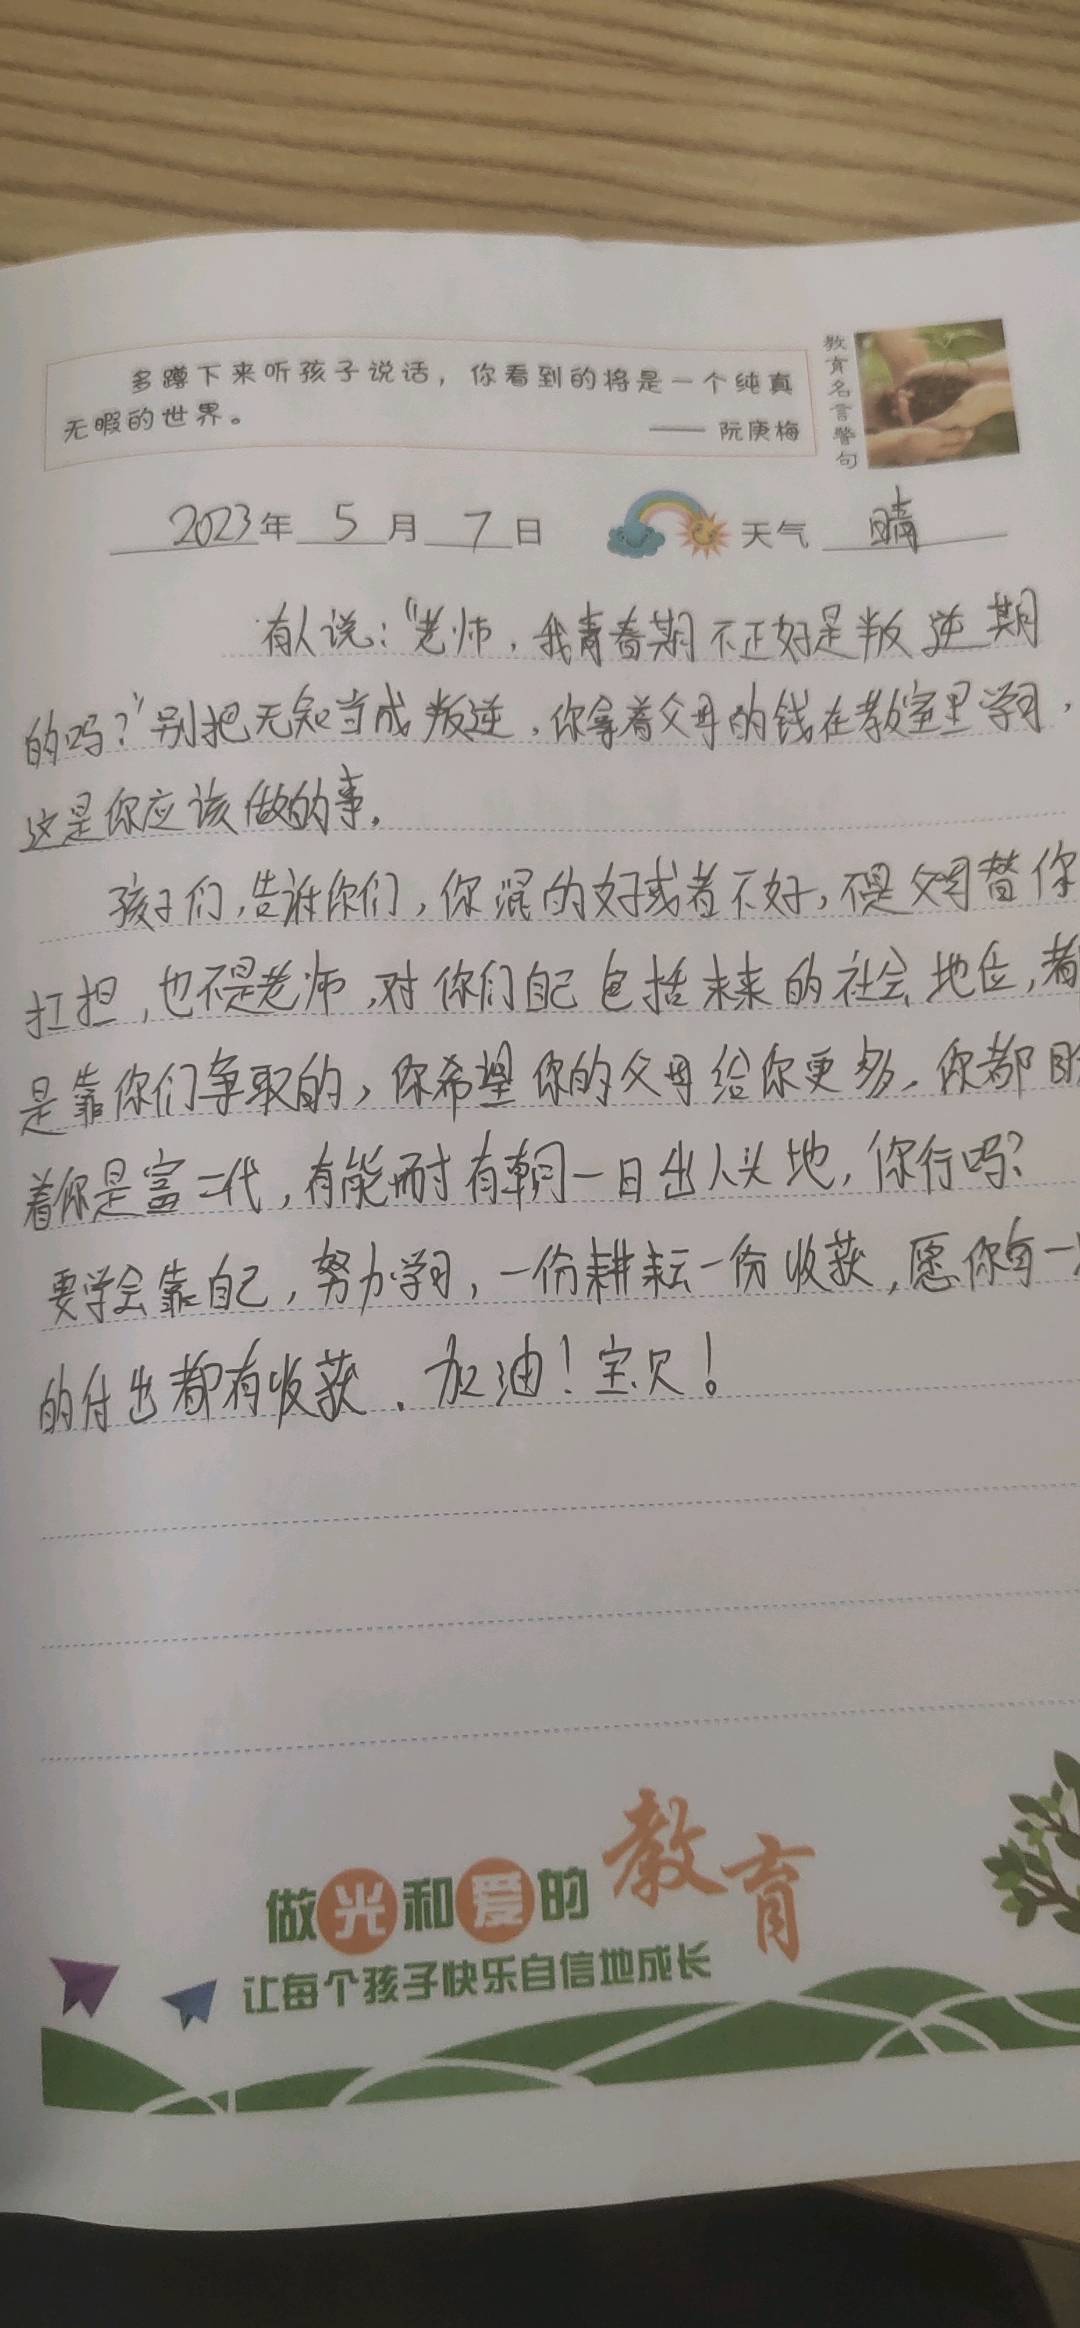 多蹲下来听孩子说话，你看到的将是一个纯真
无暇的世界。
—— 阮庚梅
教育名言警句
2023年 5 月 7 日 天气 晴
有人说：“老师，我青春期不正好是叛逆期
的吗？”别把无知当成叛逆，你拿着父母的钱在教室里学习，
这是你应该做的事。
孩子们，告诉你们，你混的好或者不好，不是父母替你
扛担，也不是老师，对你们自己包括未来的社会地位，都
是靠你们争取的，你希望你的父母给你更多，你都
着你是富二代，有能耐有朝一日出人头地，你行吗？
要学会靠自己，努力学习，一份耕耘一份收获，愿你每一
的付出都有收获．加油！宝贝！
做光和爱的教育
让每个孩子快乐自信地成长